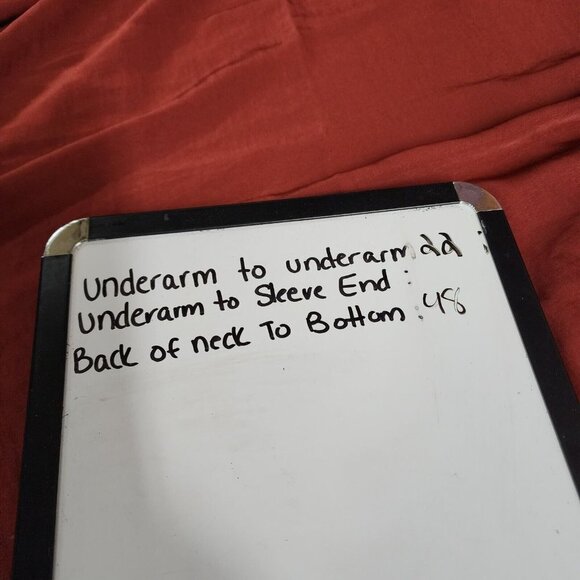 underarm to underarm 22 :
underarm to Sleeve End :
Back of neck To Bottom : 48